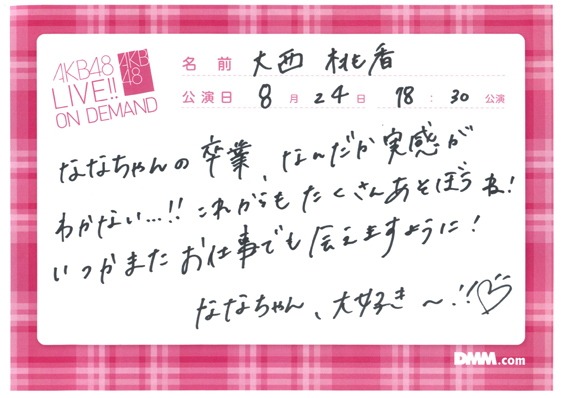 AKB48
LIVE!!
ON DEMAND
AKB
48
名前 大西 桃香
公演日 8月24日 18:30 公演
ななちゃんの卒業、なんだか実感が
わかない...!! これからもたくさんあそぼうね!
いつかまたお仕事でも会えますように!
ななちゃん、大好き〜!!♡
DMM.com